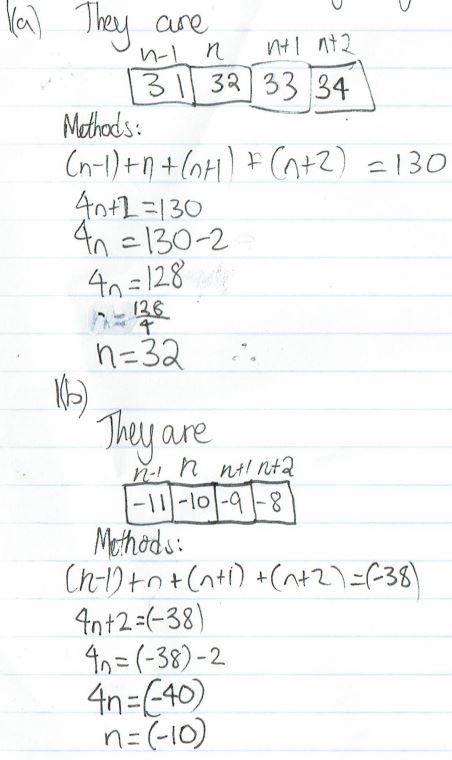 1(a) They are
n-1 n n+1 n+2
31 32 33 34
Methods:
(n-1)+n+(n+1)+(n+2) =130
4n+2=130
4n=130-2
4n=128
n=128/4
n=32 ∴
1(b)
They are
n-1 n n+1 n+2
-11 -10 -9 -8
Methods:
(n-1)+n+(n+1)+(n+2)=(-38)
4n+2=(-38)
4n=(-38)-2
4n=(-40)
n=(-10)